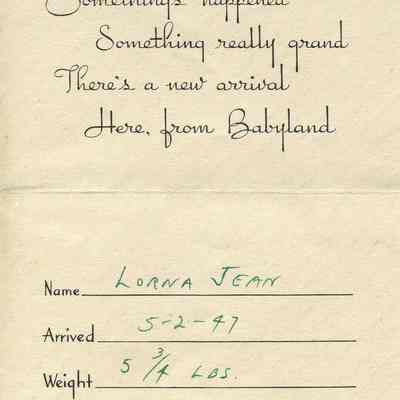 Something's happened
Something really grand
There's a new arrival
Here, from Babyland
Name LORNA JEAN
Arrived 5-2-47
Weight 5 3/4 LBS.